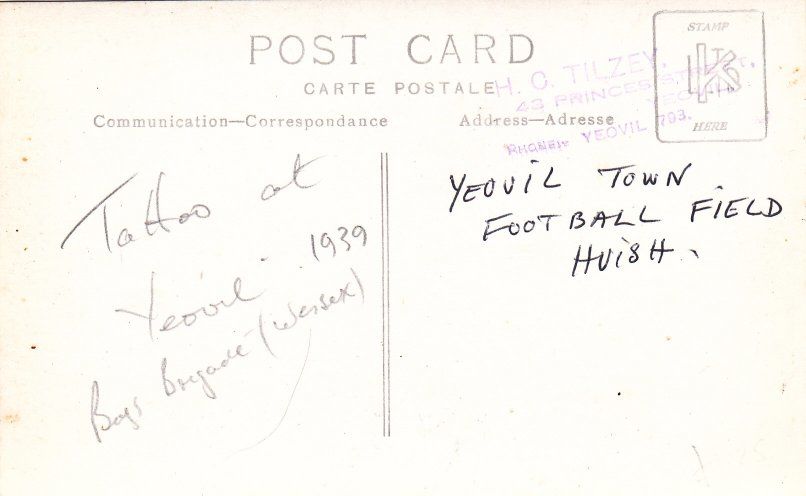 POST CARD
CARTE POSTALE
Communication—Correspondance
Address—Adresse
STAMP
K LTD
HERE
H. C. TILZEY,
43 PRINCES STREET,
YEOVIL
PHONE:- YEOVIL 793.
Tattoo at
Yeovil. 1939
Boys Brigade (Wessex)
YEOVIL TOWN
FOOTBALL FIELD
HUISH.